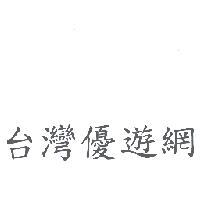 台灣優遊網